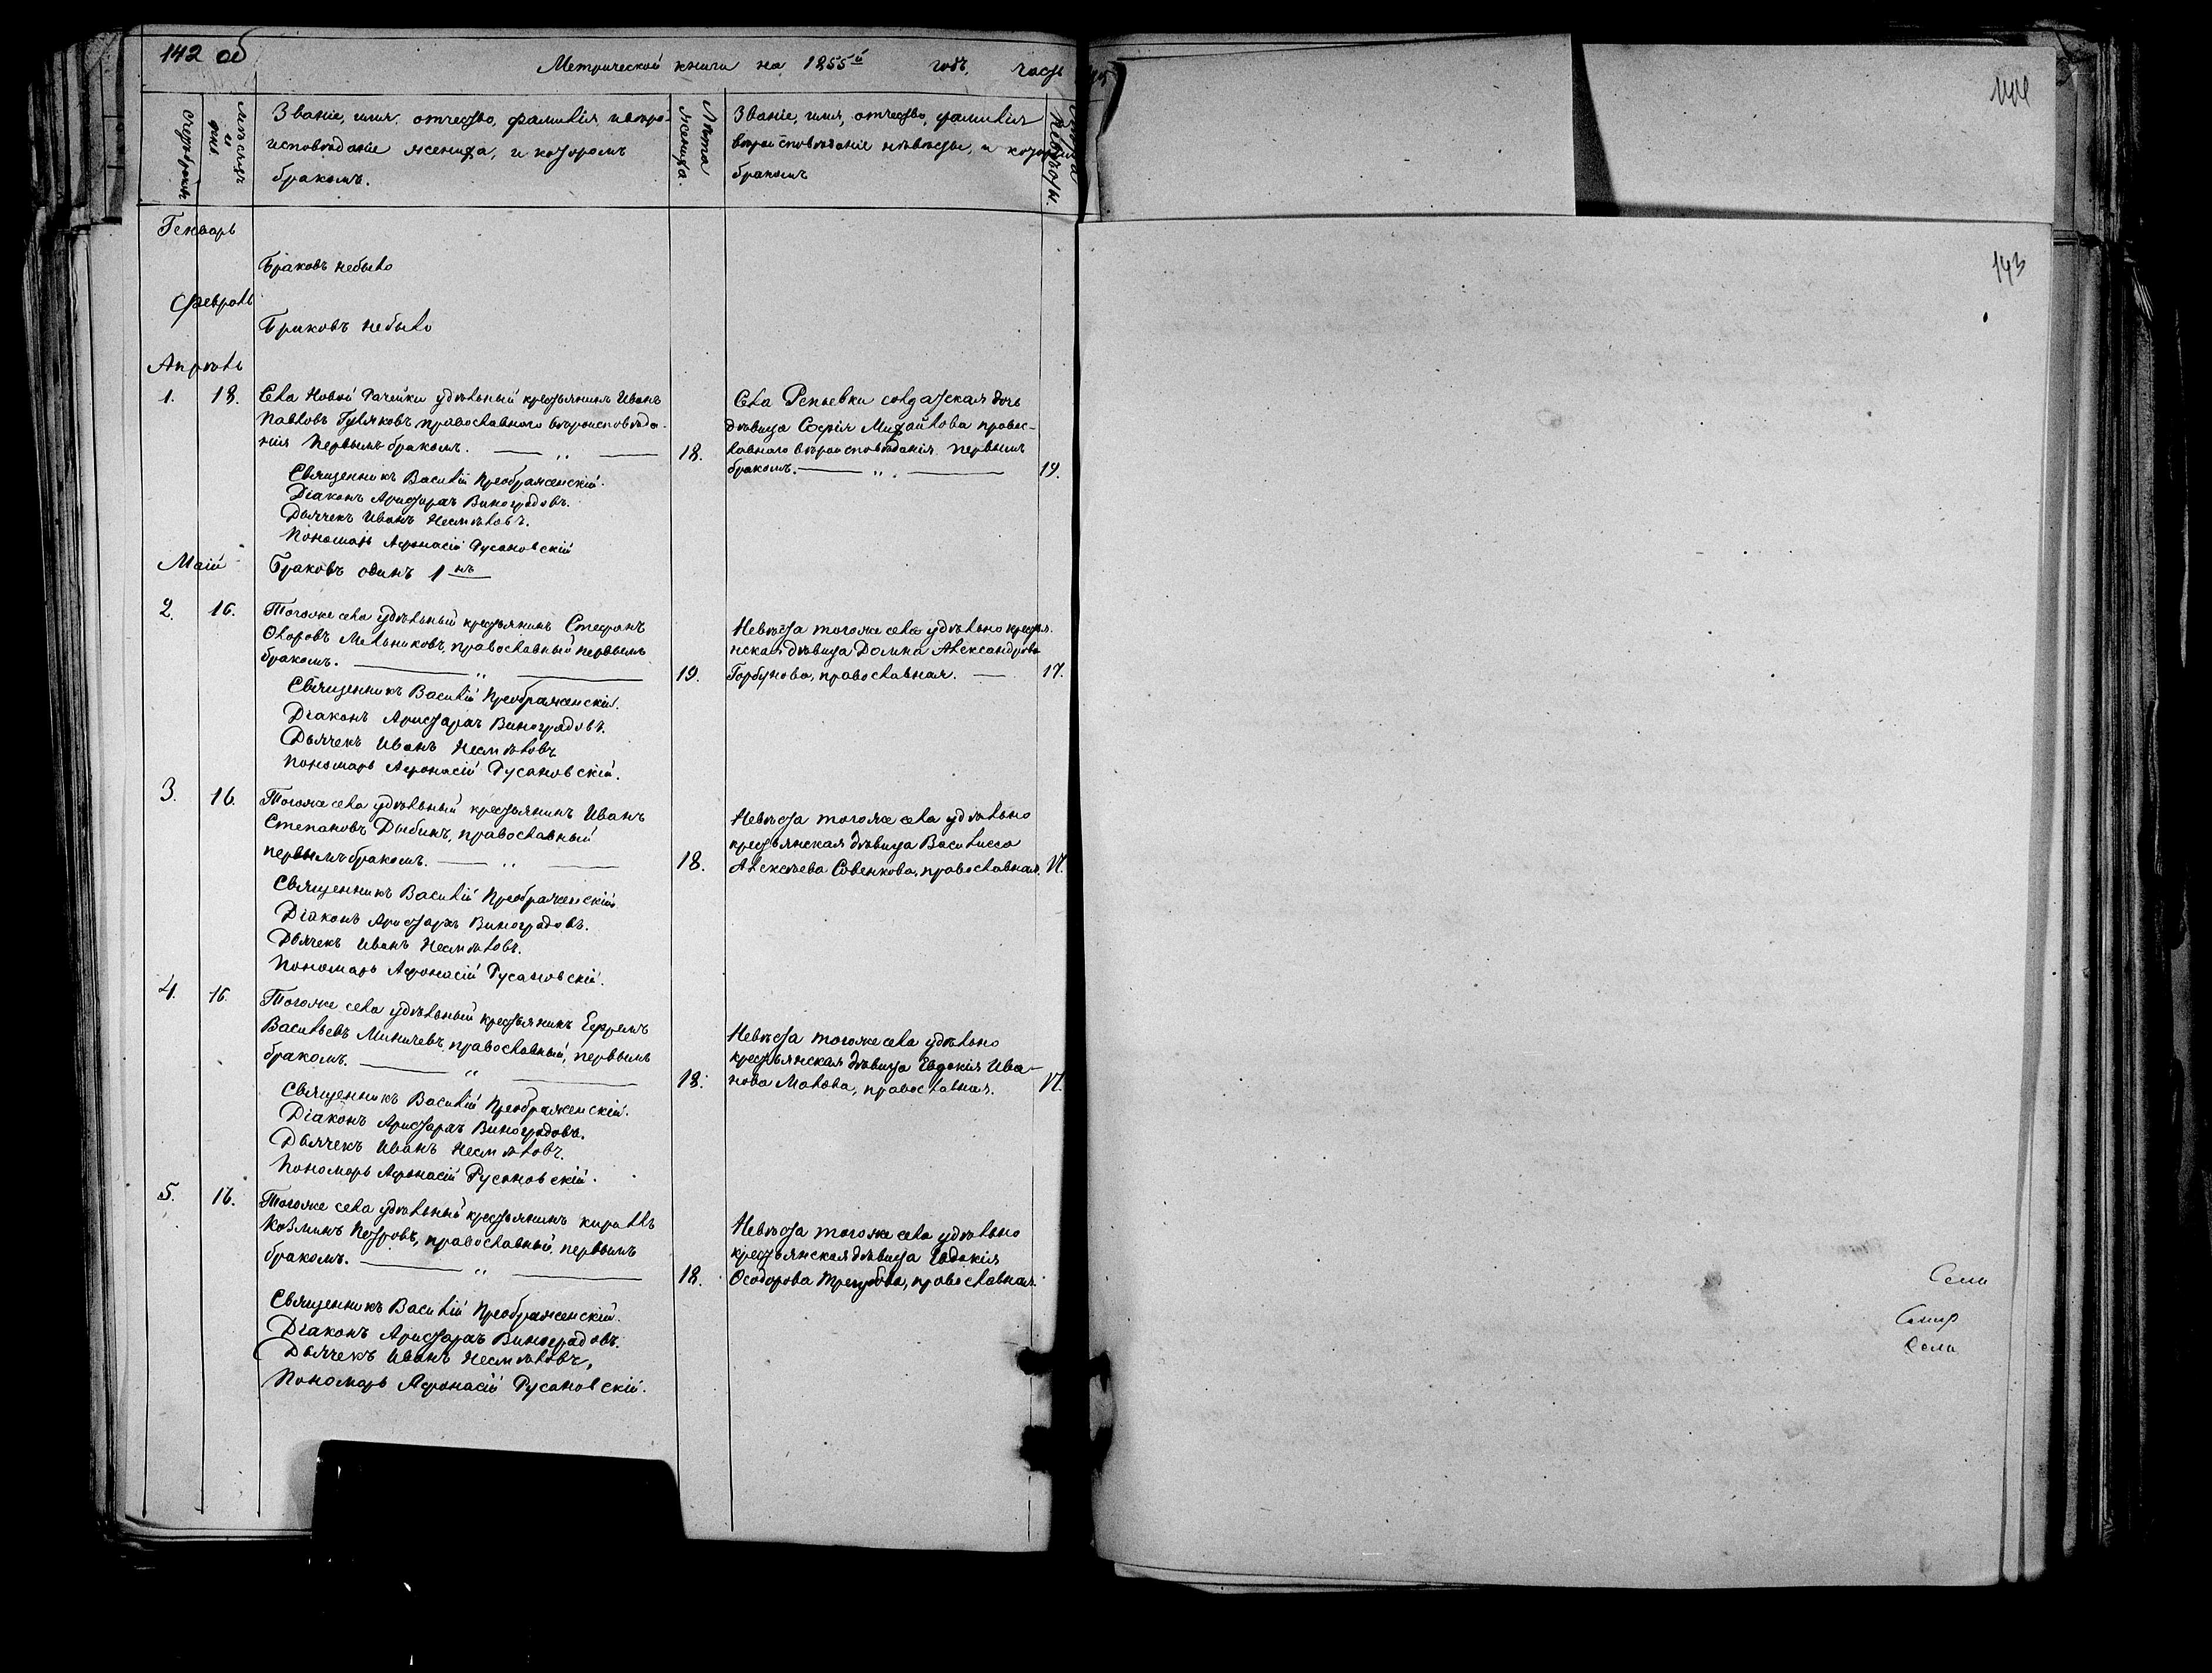 142 об
Метрической книги на 1855й годъ, часть
Счетъ браковъ
Мѣсяцъ и день
Званіе, имя, отчество, фамилія и вѣро-
исповѣданіе жениха, и которымъ
бракомъ.
Лѣта жениха.
Званіе, имя, отчество, фамилія
вѣроисповѣданіе невѣсты, и которымъ
бракомъ
Лѣта невѣсты.
Генварь
Браковъ небыло
Февраль
Браковъ небыло
Апрѣль
1. 18. Села Новой Рачейки удѣльный крестьянинъ Иванъ
Павловъ Гуляковъ, православнаго вѣроисповѣда-
нія первымъ бракомъ. — „ — 18.
Села Репьевки солдатская дочь
дѣвица Софія Михайлова правос-
лавнаго вѣроисповѣданія первымъ
бракомъ. — „ — 19.
Священникъ Василій Преображенскій.
Діаконъ Аристархъ Виноградовъ.
Дьячекъ Иванъ Несмѣловъ.
Пономарь Афонасій Русановскій
Маій Браковъ одинъ 1нъ
2. 16. Тогоже села удѣльный крестьянинъ Стефанъ
Ѳларовъ Мельниковъ, православный первымъ
бракомъ. — „ — 19.
Невѣста тогоже села удѣльно крестья-
нская дѣвица Домна Александрова
Горбунова, православная. — 17.
Священникъ Василій Преображенскій.
Діаконъ Аристархъ Виноградовъ.
Дьячекъ Иванъ Несмѣловъ
Пономарь Афонасій Русановскій.
3. 16. Тогоже села удѣльный крестьянинъ Иванъ
Степановъ Дыбинъ, православный
первымъ бракомъ. — „ — 18.
Невѣста тогоже села удѣльно
крестьянская дѣвица Василисса
Алексѣева Совенкова, православная. 17.
Священникъ Василій Преображенскій
Діаконъ Аристархъ Виноградовъ.
Дьячекъ Иванъ Несмѣловъ.
Пономарь Афонасій Русановскій.
4. 16. Тогоже села удѣльный крестьянинъ Ефремъ
Васильевъ Миничевъ, православный, первымъ
бракомъ. — „ — 18.
Невѣста тогоже села удѣльно
крестьянская дѣвица Евдокія Ива-
нова Малова, православная. 17.
Священникъ Василій Преображенскій.
Діаконъ Аристархъ Виноградовъ.
Дьячекъ Иванъ Несмѣловъ.
Пономарь Афонасій Русановскій.
5. 16. Тогоже села удѣльный крестьянинъ Кириллъ
Козминъ Петровъ, православный, первымъ
бракомъ. — „ — 18.
Невѣста тогоже села удѣльно
крестьянская дѣвица Евдокія
Ѳеодорова православная.
Священникъ Василій Преображенскій.
Діаконъ Аристархъ Виноградовъ.
Дьячекъ Иванъ Несмѣловъ,
Пономарь Афонасій Русановскій.
144
143